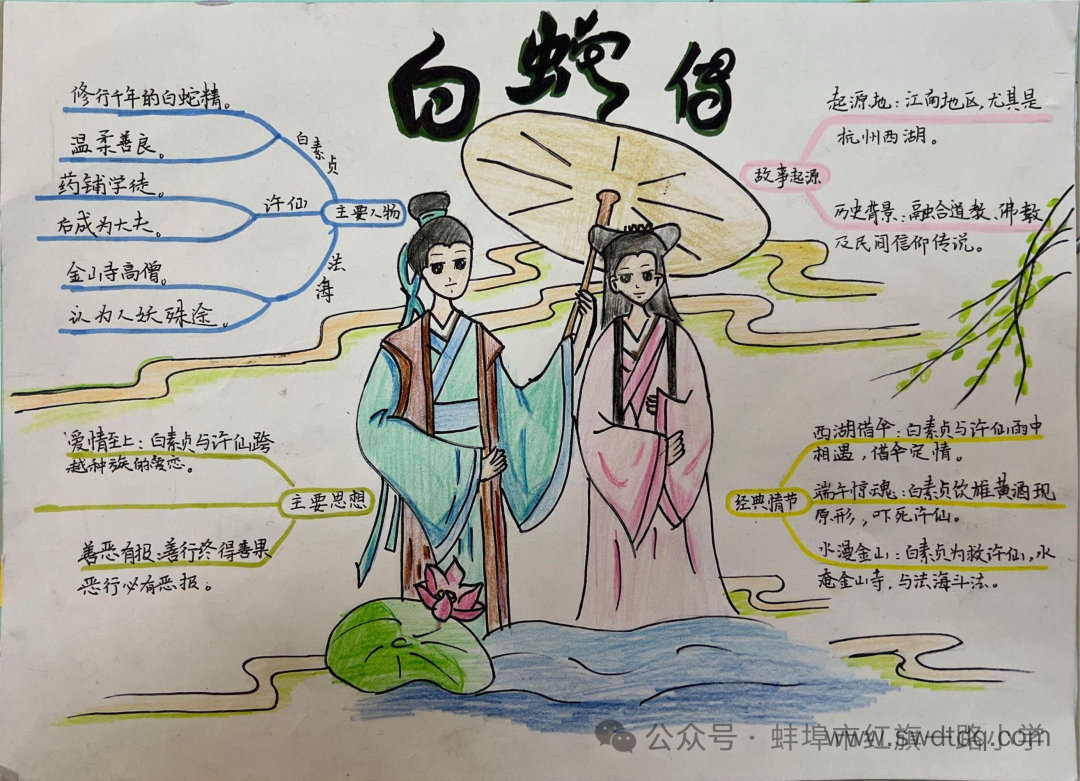 白蛇传
修行千年的白蛇精。
温柔善良。
白素贞
药铺学徒。
后成为大夫。
许仙
主要人物
金山寺高僧。
认为人妖殊途。
法海
起源地：江南地区，尤其是
杭州西湖。
故事起源
历史背景：融合道教、佛教
及民间信仰传说。
爱情至上：白素贞与许仙跨
越种族的爱恋。
主要思想
善恶有报：善行终得善果
恶行必有恶报。
西湖借伞：白素贞与许仙雨中
相遇，借伞定情。
端午惊魂：白素贞饮雄黄酒现
原形，吓死许仙。
经典情节
水漫金山：白素贞为救许仙，水
淹金山寺，与法海斗法。
公众号·蚌埠市红旗一路小学
www.swdtdq.com